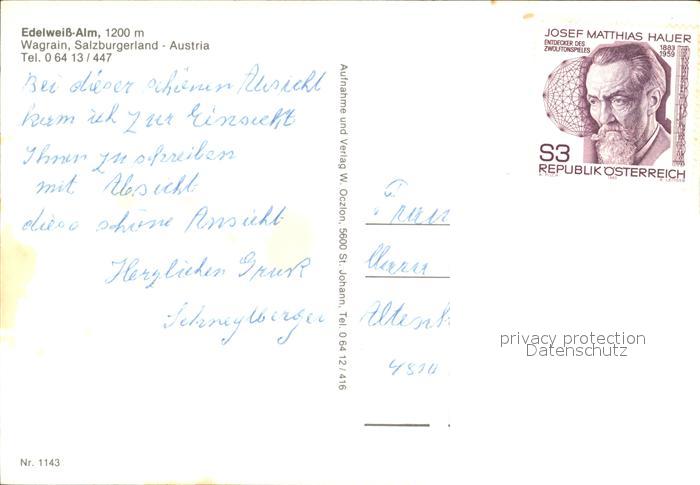 Edelweiß-Alm, 1200 m
Wagrain, Salzburgerland - Austria
Tel. 0 64 13 / 447
Bei dieser schönen Aussicht
kam ich zur Einsicht
Ihnen zu schreiben
mit Absicht
diese schöne Ansicht
Herzlichen Gruß
Aufnahme und Verlag W. Oczlon, 5600 St. Johann, Tel. 0 64 12 / 416
JOSEF MATTHIAS HAUER
ENTDECKER DES
ZWÖLFTONSPIELES
1883
1959
S3
REPUBLIK ÖSTERREICH
4810
privacy protection
Datenschutz
Nr. 1143